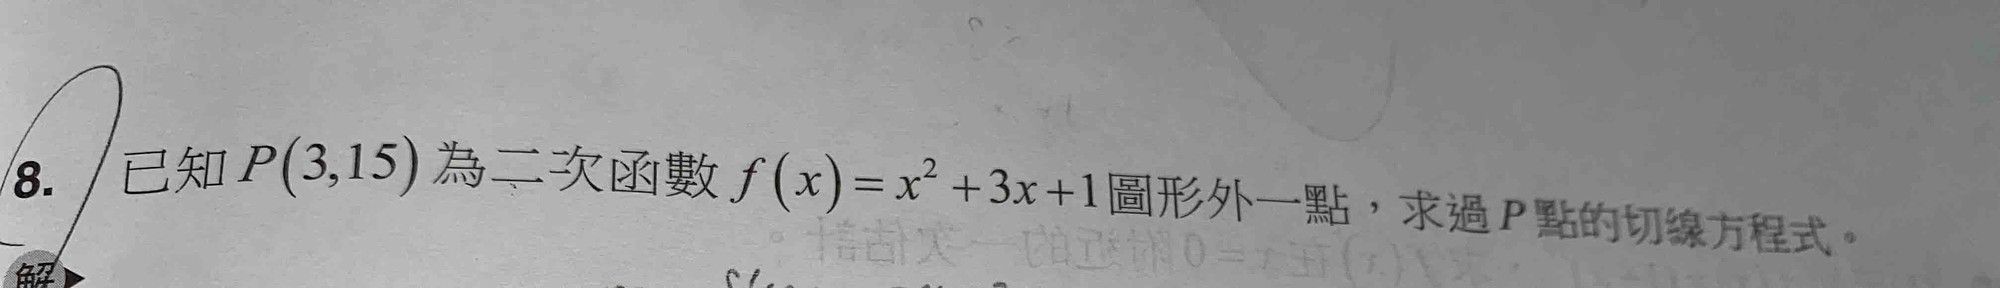 8. 已知 P(3,15) 為二次函數 f(x)=x²+3x+1圖形外一點，求過 P 點的切線方程式。
解▶